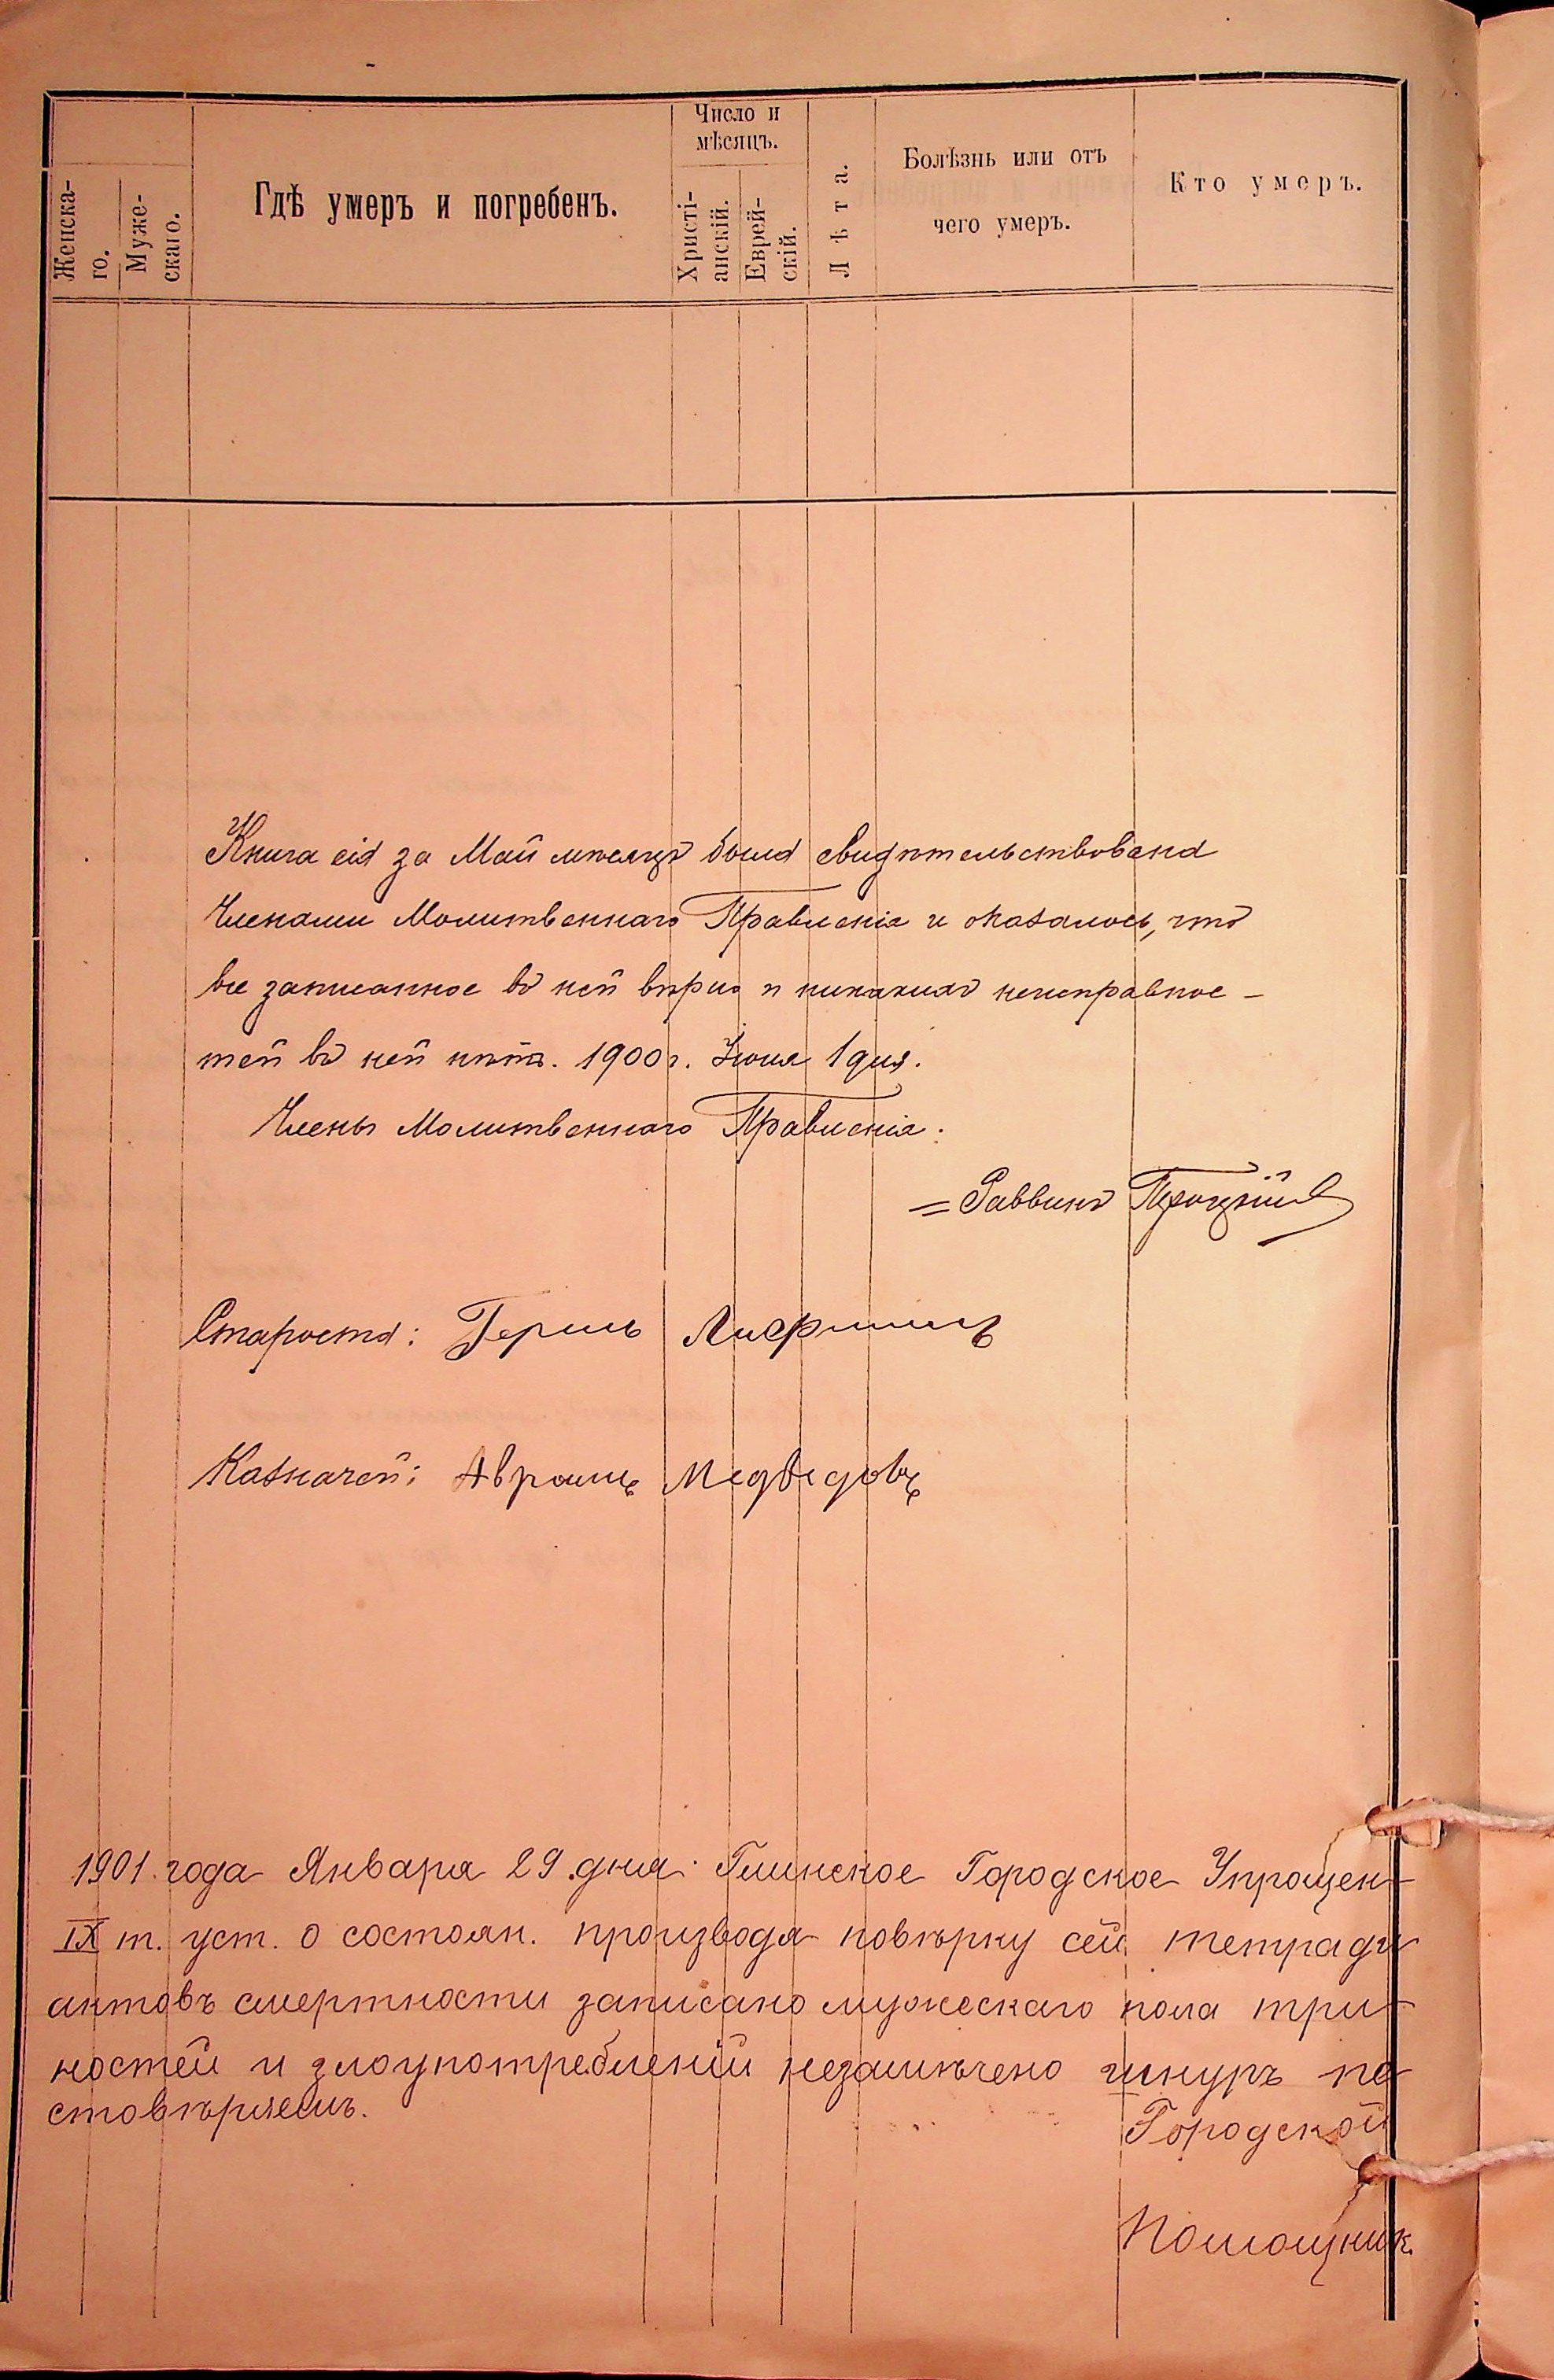 Женска-
го.
Муже-
скаго.
Гдѣ умеръ и погребенъ.
Число и
мѣсяцъ.
Христі-
анскій.
Еврей-
скій.
Лѣта.
Болѣзнь или отъ
чего умеръ.
Кто умеръ.
Книга сія за Май мѣсяцъ была свидѣтельствована
Членами Молитвеннаго Правленія и оказалось, что
все записанное въ ней вѣрно и никакихъ неисправнос-
тей въ ней нѣтъ. 1900 г. Іюня 1 дня.
Члены Молитвеннаго Правленія:
Раввинъ
Староста: Гершъ
Казначей: Аврамъ Медведовъ
1901 года Января 29 дня Глинское Городское Упрощен-
IX т. уст. о состоян. производя повѣрку сей тетради
актовъ смертности записано мужескаго пола три-
ностей и злоупотребленій незамѣчено шнуръ пе
стовѣряемъ.
Городской
Помощник